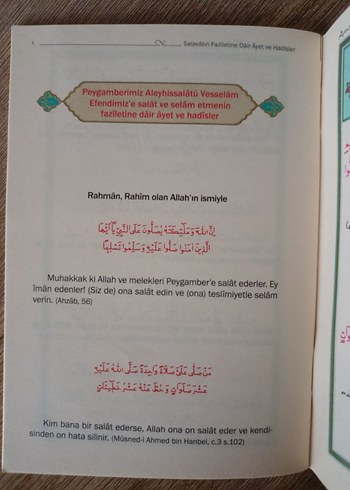 Salavâtın Faziletine Dâir Âyet ve Hadîsler
Peygamberimiz Aleyhissalâtü Vesselâm
Efendimiz'e salât ve selâm etmenin
faziletine dâir âyet ve hadîsler
Rahmân, Rahîm olan Allah'ın ismiyle
اِنَّ اللّٰهَ وَمَلٰٓئِكَتَهُ يُصَلُّونَ عَلَى النَّبِيِّ يَٓا اَيُّهَا
الَّذِينَ اٰمَنُوا صَلُّوا عَلَيْهِ وَسَلِّمُوا تَسْلِيمًا
Muhakkak ki Allah ve melekleri Peygamber'e salât ederler. Ey
îmân edenler! (Siz de) ona salât edin ve (ona) teslîmiyetle selâm
verin. (Ahzâb, 56)
مَنْ صَلَّى عَلَىَّ صَلَاةً وَاحِدَةً صَلَّى اللّٰهُ عَلَيْهِ
عَشْرَ صَلَوَاتٍ وَحُطَّ عَنْهُ عَشْرُ خَطِيئَاتٍ
Kim bana bir salât ederse, Allah ona on salât eder ve kendi-
sinden on hata silinir. (Müsned-i Ahmed bin Hanbel, c.3 s.102)